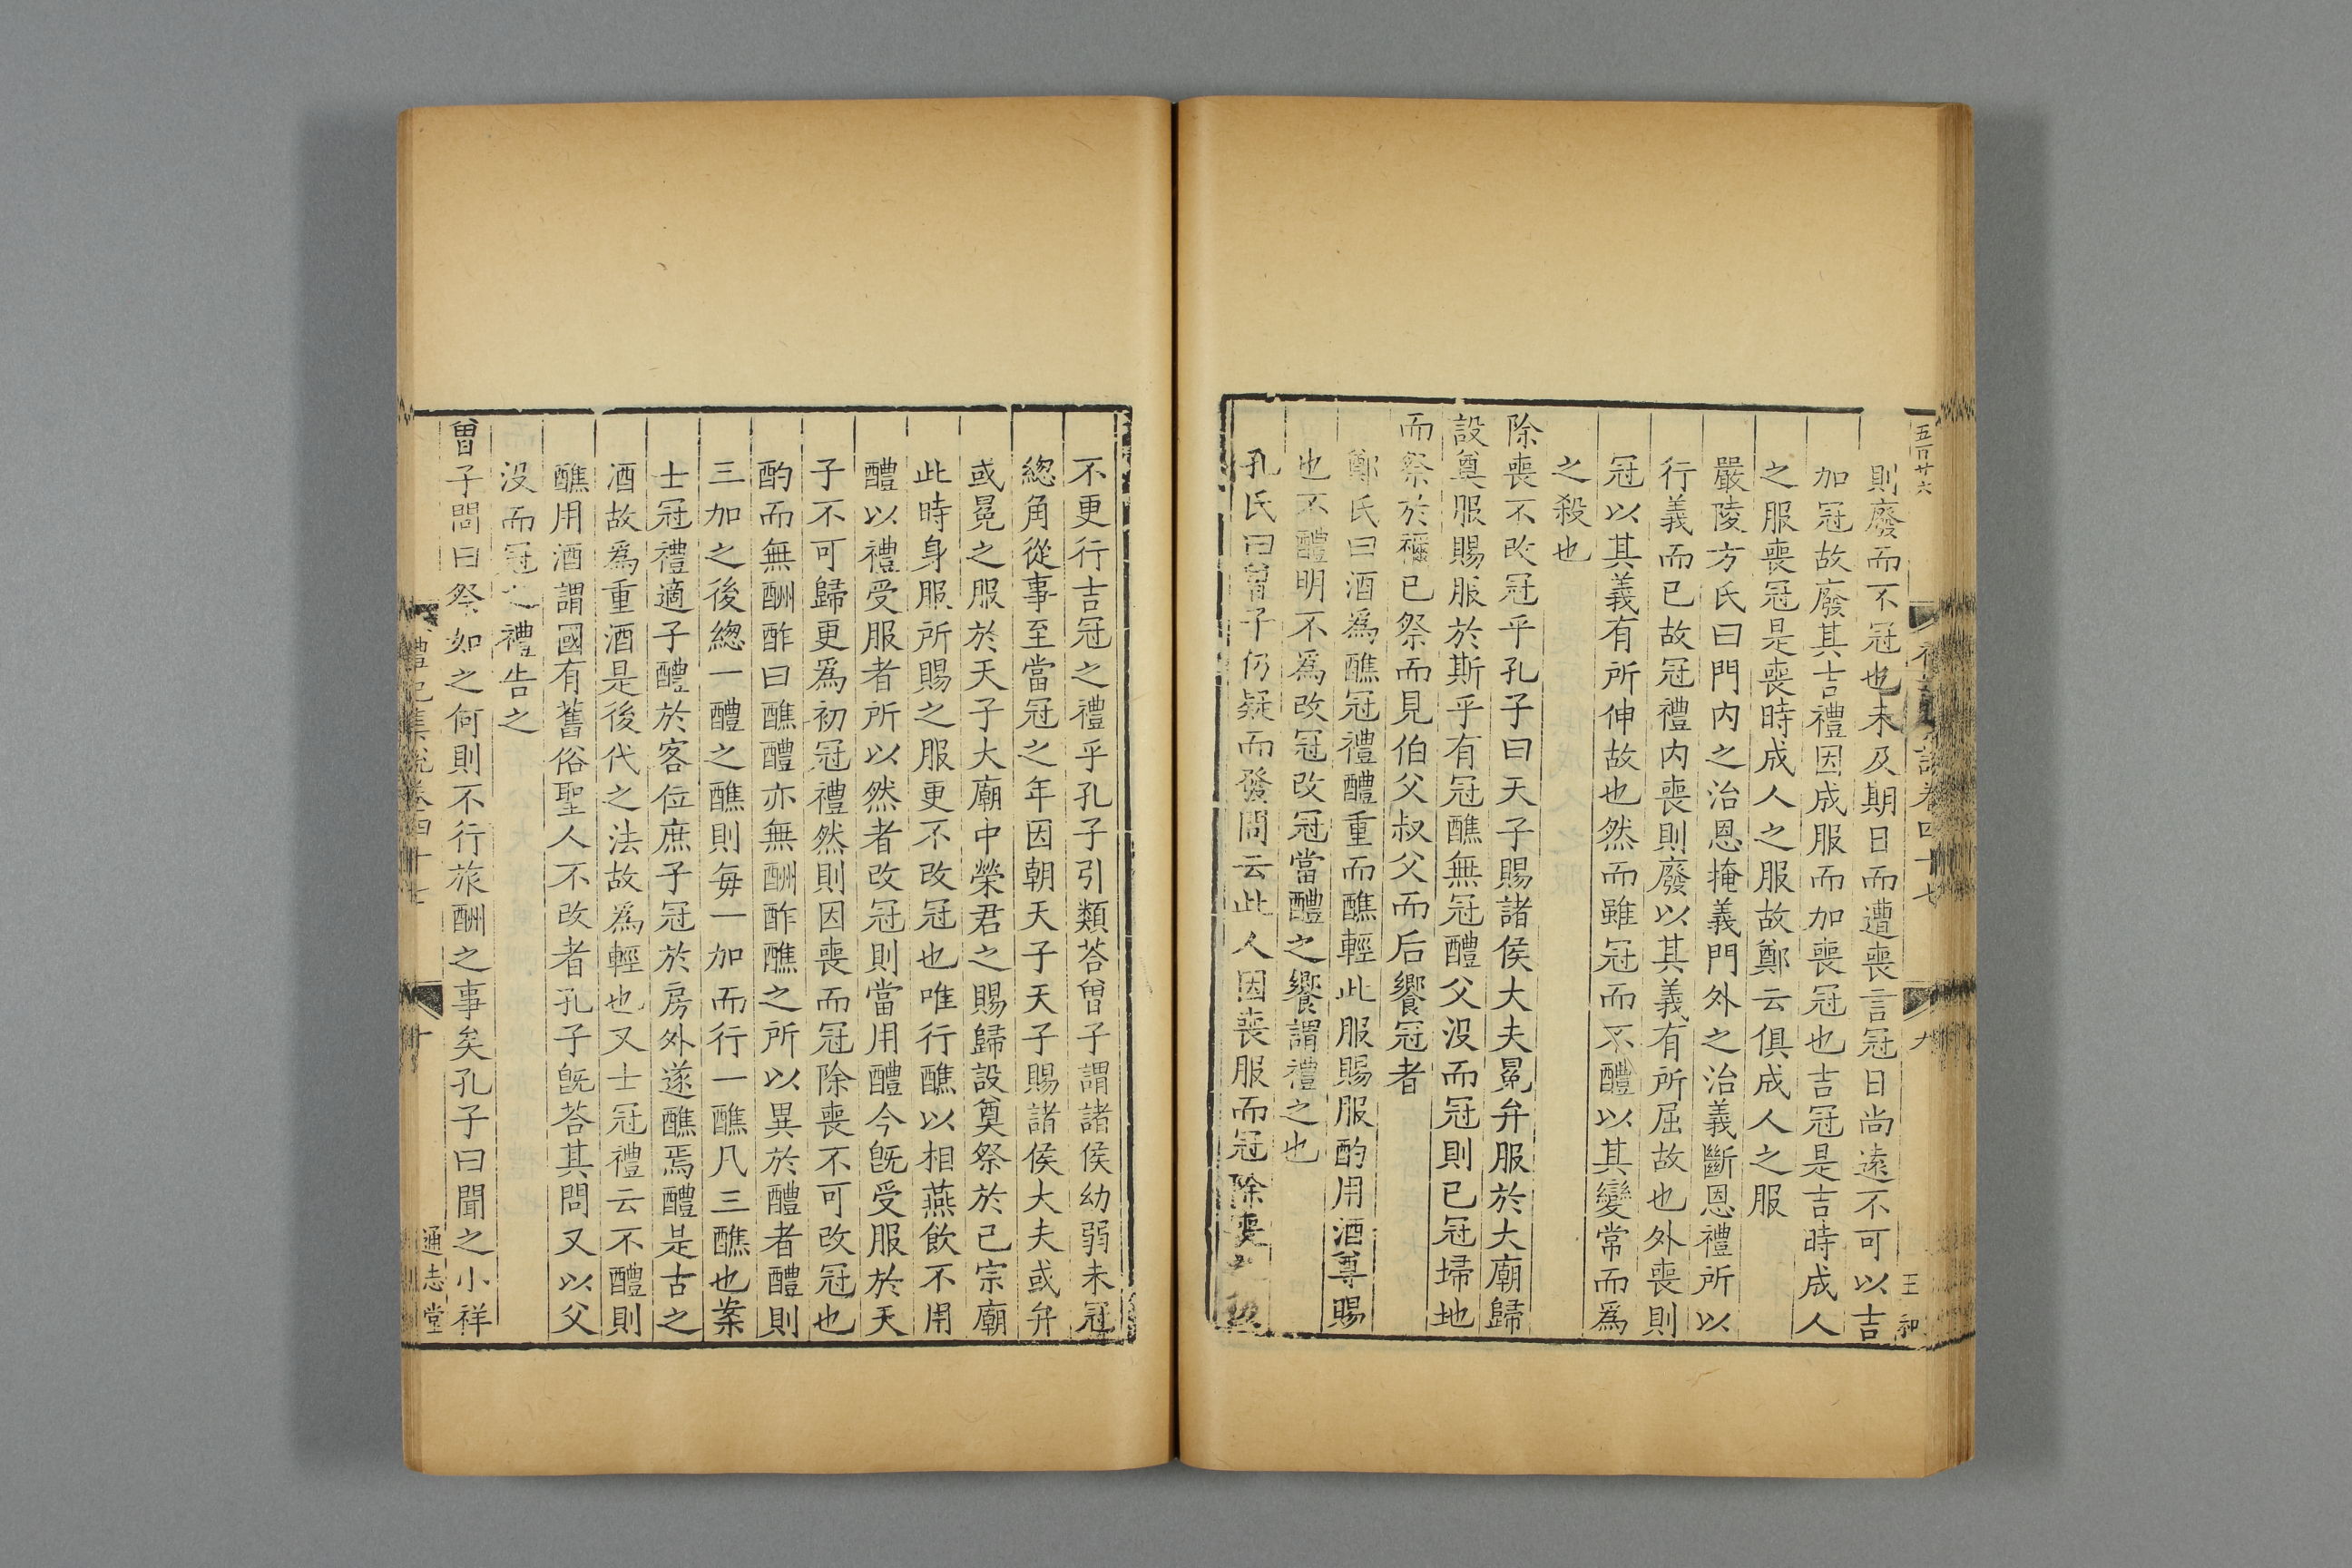 五百廿六
禮記集說卷四十七
九
王和
則廢而不冠也未及期日而遭喪言冠日尚遠不可以吉
加冠故廢其吉禮因成服而加喪冠也吉冠是吉時成人
之服喪冠是喪時成人之服故鄭云俱成人之服
嚴陵方氏曰門内之治恩掩義門外之治義斷恩禮所以
行義而已故冠禮内喪則廢以其義有所屈故也外喪則
冠以其義有所伸故也然而雖冠而不醴以其變常而爲
之殺也
除喪不改冠乎孔子曰天子賜諸侯大夫冕弁服於大廟歸
設奠服賜服於斯乎有冠醮無冠醴父没而冠則已冠埽地
而祭於禰已祭而見伯父叔父而后饗冠者
鄭氏曰酒爲醮冠禮醴重而醮輕此服賜服酌用酒尊賜
也不醴明不爲改冠改冠當醴之饗謂禮之也
孔氏曰曾子仍疑而發問云此人因喪服而冠除喪之後
不更行吉冠之禮乎孔子引類荅曾子謂諸侯幼弱未冠
緫角從事至當冠之年因朝天子天子賜諸侯大夫或弁
或冕之服於天子大廟中榮君之賜歸設奠祭於己宗廟
此時身服所賜之服更不改冠也唯行醮以相燕飲不用
醴以禮受服者所以然者改冠則當用醴今旣受服於天
子不可歸更爲初冠禮然則因喪而冠除喪不可改冠也
酌而無酬酢曰醮醴亦無酬酢醮之所以異於醴者醴則
三加之後緫一醴之醮則每一加而行一醮凡三醮也案
士冠禮適子醴於客位庶子冠於房外遂醮焉醴是古之
酒故爲重酒是後代之法故爲輕也又士冠禮云不醴則
醮用酒謂國有舊俗聖人不改者孔子旣荅其問又以父
没而冠之禮告之
曾子問曰祭如之何則不行旅酬之事矣孔子曰聞之小祥
禮記集說卷四十七
十
通志堂